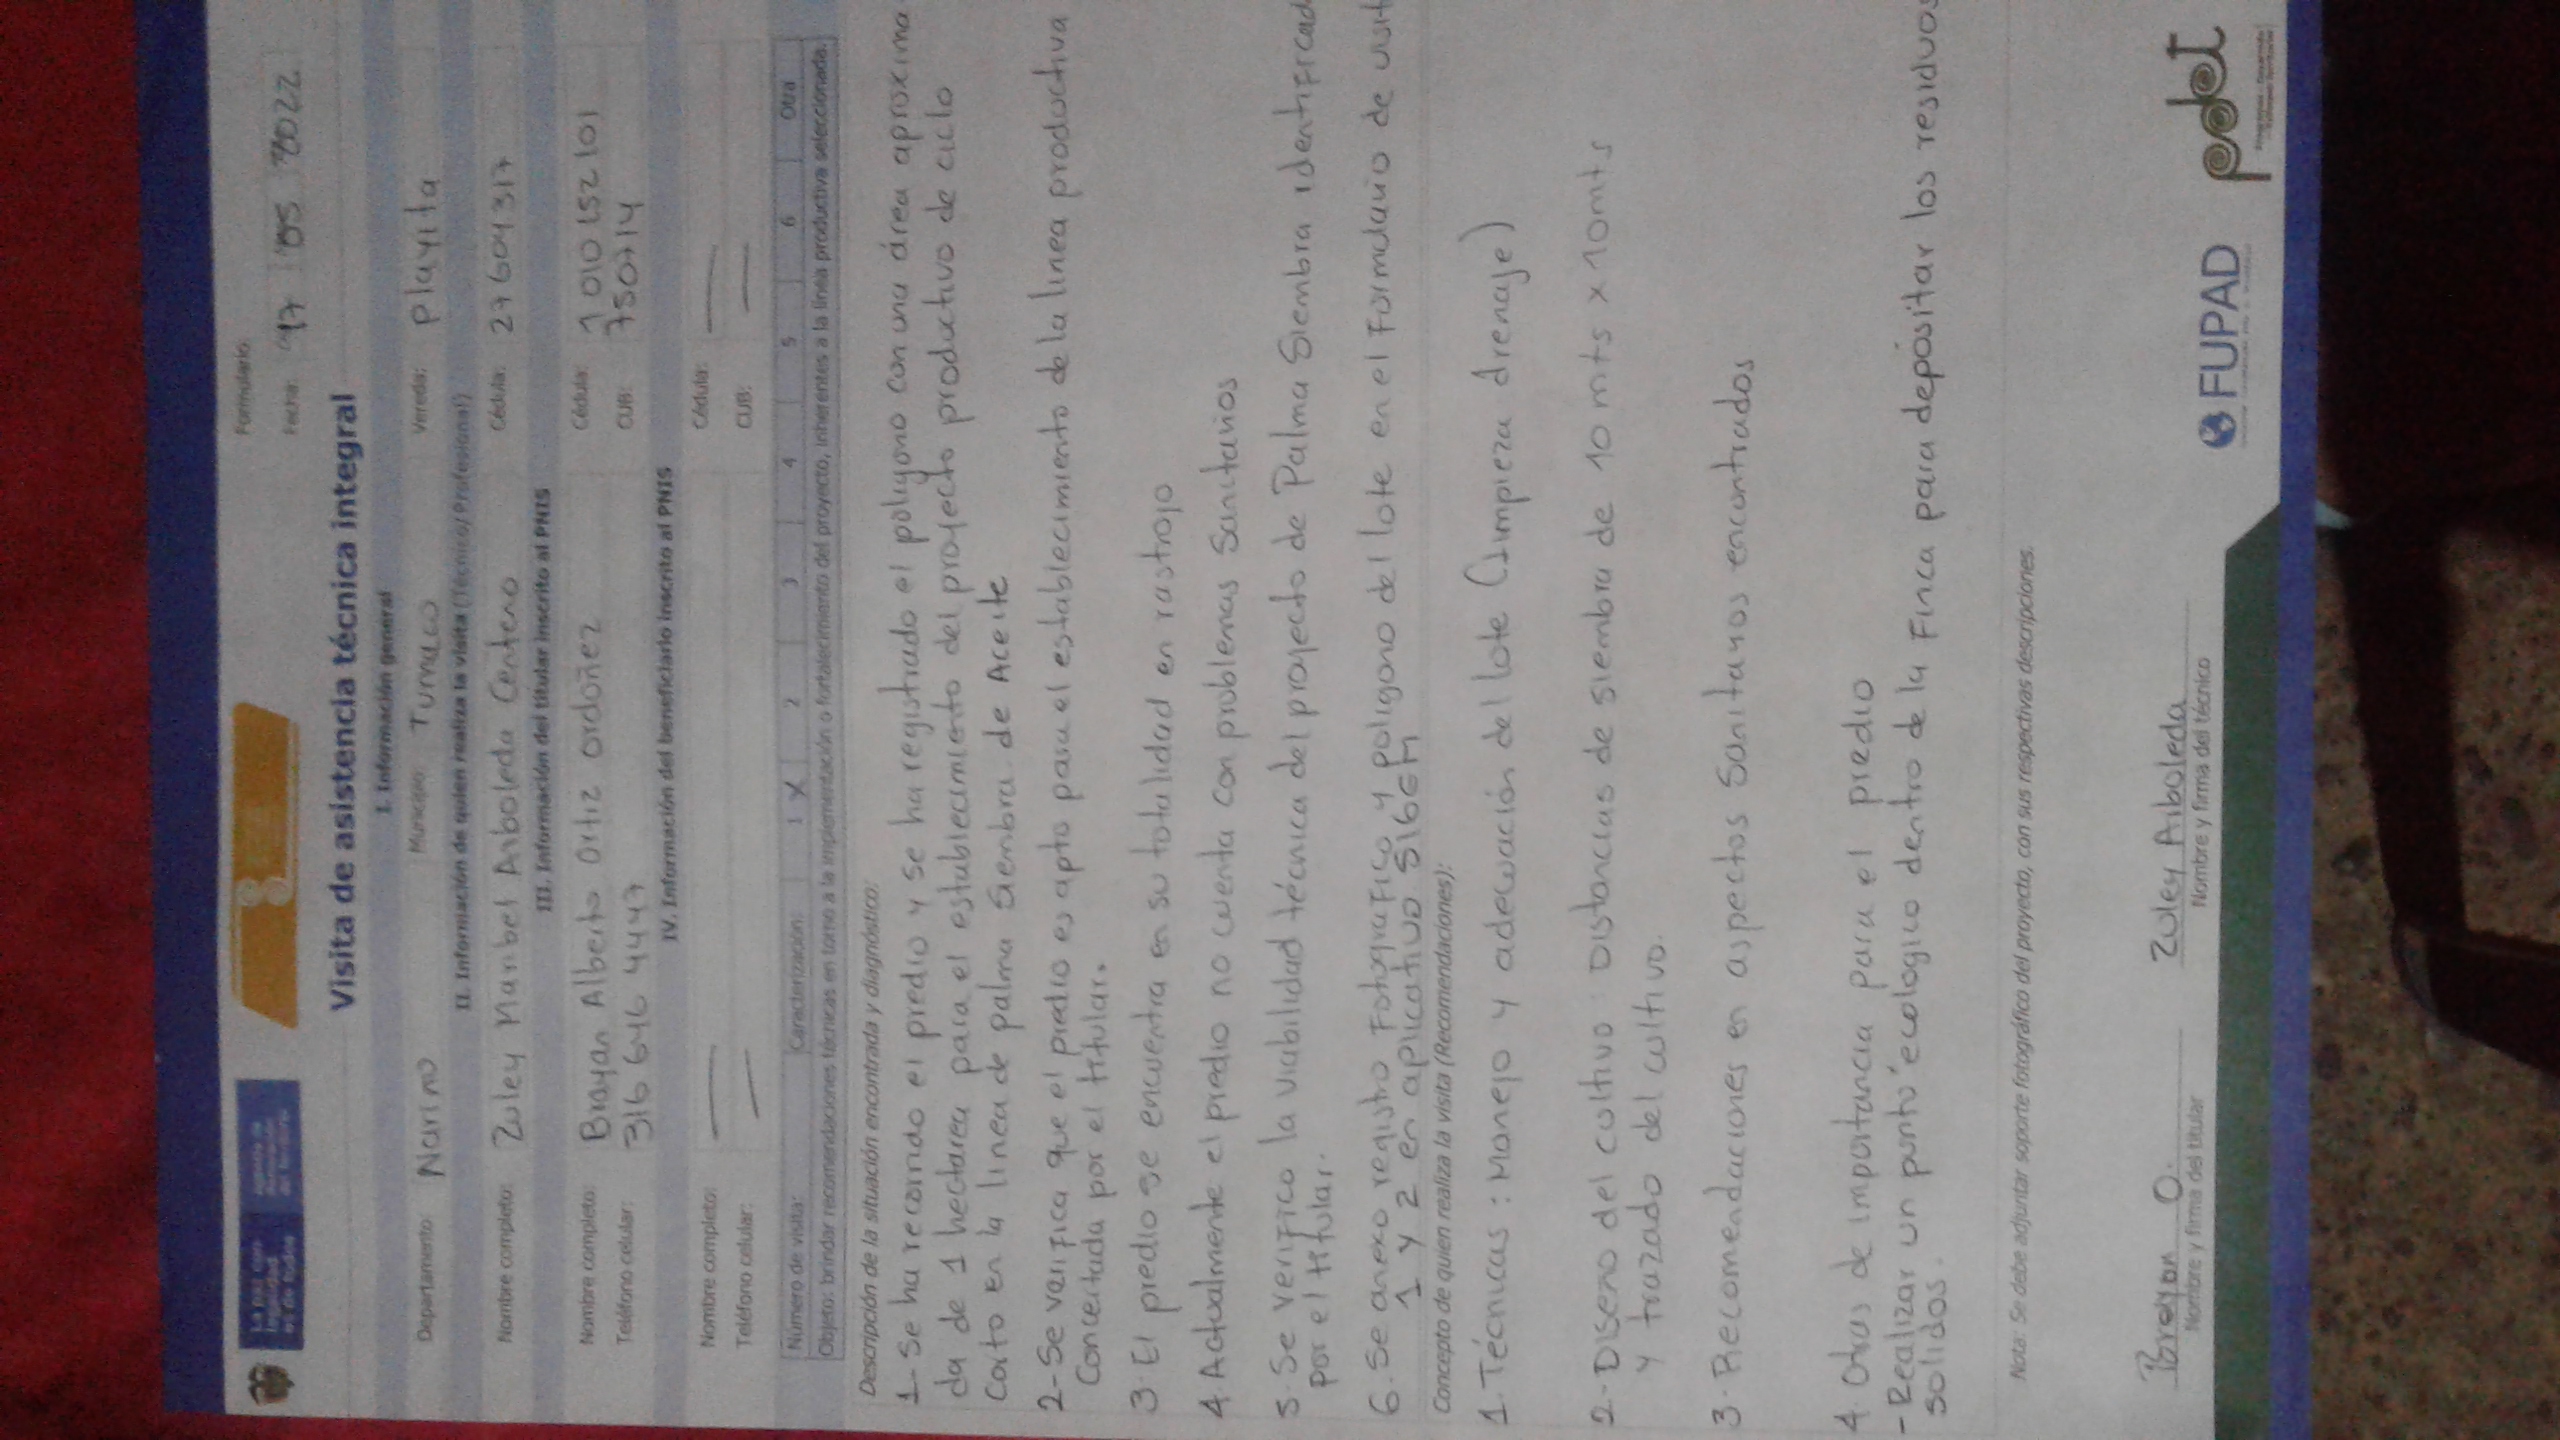 Formulario
Fecha: 17 05 2022
Visita de asistencia técnica integral
I. Información general
Departamento: Nariño Municipio: Tumaco Vereda: Playita
II. Información de quien realiza la visita (Técnico/Profesional)
Nombre completo: Zuley Maribel Arboleda Centeno Cédula: 27604317
III. Información del titular inscrito al PNIS
Nombre completo: Brayan Alberto Ortiz Ordoñez Cédula: 1010152101
Teléfono celular: 316 646 4447 CUB: 750714
IV. Información del beneficiario inscrito al PNIS
Nombre completo: — Cédula: —
Teléfono celular: — CUB: —
Número de visita: Caracterización: 1 X 2 3 4 5 6 Otra
Objeto: brindar recomendaciones técnicas en torno a la implementación o fortalecimiento del proyecto, inherentes a la línea productiva seleccionada.
Descripción de la situación encontrada y diagnóstico:
1- Se ha recorrido el predio y se ha registrado el poligono con una área aproxima
da de 1 hectarea para el establecimiento del proyecto productivo de ciclo
Corto en la linea de palma Siembra de Aceite
2- Se verifica que el predio es apto para el establecimiento de la linea productiva
Concertada por el titular.
3. El predio se encuentra en su totalidad en rastrojo
4 Actualmente el predio no cuenta con problemas Sanitarios
5. Se verifico la viabilidad técnica del proyecto de Palma Siembra identificad
por el titular.
6. Se anexo registro Fotografico y poligono del lote en el Formulario de visit
1 y 2 en aplicativo SIGEM
Concepto de quien realiza la visita (Recomendaciones):
1. Técnicas: Manejo y adecuación del lote (Limpieza drenaje)
2. Diseño del cultivo: Distancias de siembra de 10 mts x 10mts
y trazado del cultivo.
3. Recomendaciones en aspectos Sanitarios encontrados
4. Otras de importancia para el predio
- Realizar un punto ecologico dentro de la Finca para depositar los residuos
Solidos.
Nota: Se debe adjuntar soporte fotográfico del proyecto, con sus respectivas descripciones.
Brayan O. Zuley Arboleda
Nombre y firma del titular Nombre y firma del técnico
FUPAD pdet